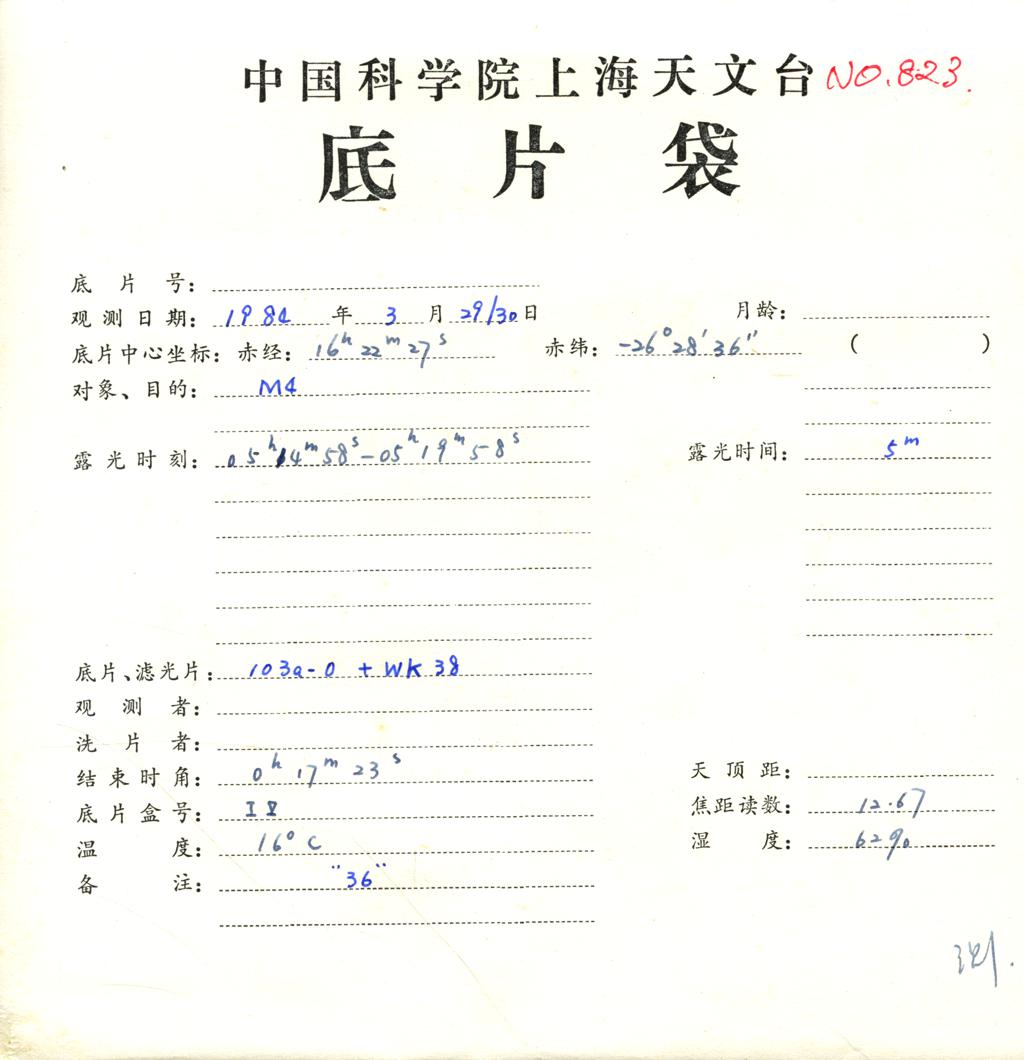 中国科学院上海天文台 NO.823.
底片袋
底片号：
观测日期：1984年3月29/30日 月龄：
底片中心坐标：赤经：16ʰ22ᵐ27ˢ 赤纬：-26°28′36″ ( )
对象、目的：M4
露光时刻：05ʰ14ᵐ58ˢ-05ʰ19ᵐ58ˢ 露光时间：5ᵐ
底片、滤光片：103a-O + WK38
观测者：
洗片者：
结束时角：0ʰ17ᵐ23ˢ 天顶距：
底片盒号： 焦距读数：12.67
温度：16°C 湿度：62%
备注："36"